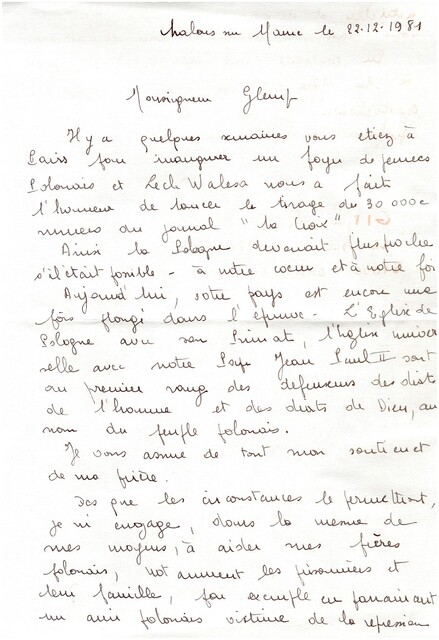 Chalons sur Marne le 22.12.1981
Monseigneur Glemp
Il y a quelques semaines vous etiez à
Paris pour inaugurer un foyer de jeunes
Polonais et Lech Walesa nous a fait
l'honneur de lancer le tirage du 30 000e
numero du journal "la Croix"
Ainsi la Pologne devenait plus proche
s'il était possible - à notre coeur et à notre foi
Aujourd'hui, votre pays est encore une
fois plongé dans l'épreuve - L'Eglise de
Pologne avec son Primat, l'Eglise univer
selle avec notre Pape Jean Paul II sont
au premier rang des défenseurs des droits
de l'homme et des droits de Dieu, au
nom du peuple polonais.
Je vous assure de tout mon soutien et
de ma prière.
Dès que les circonstances le permettront,
je m'engage, dans la mesure de
mes moyens, à aider mes frères
polonais, notamment les prisonniers et
leur famille, par exemple en parrainant
un ami polonais victime de la repression